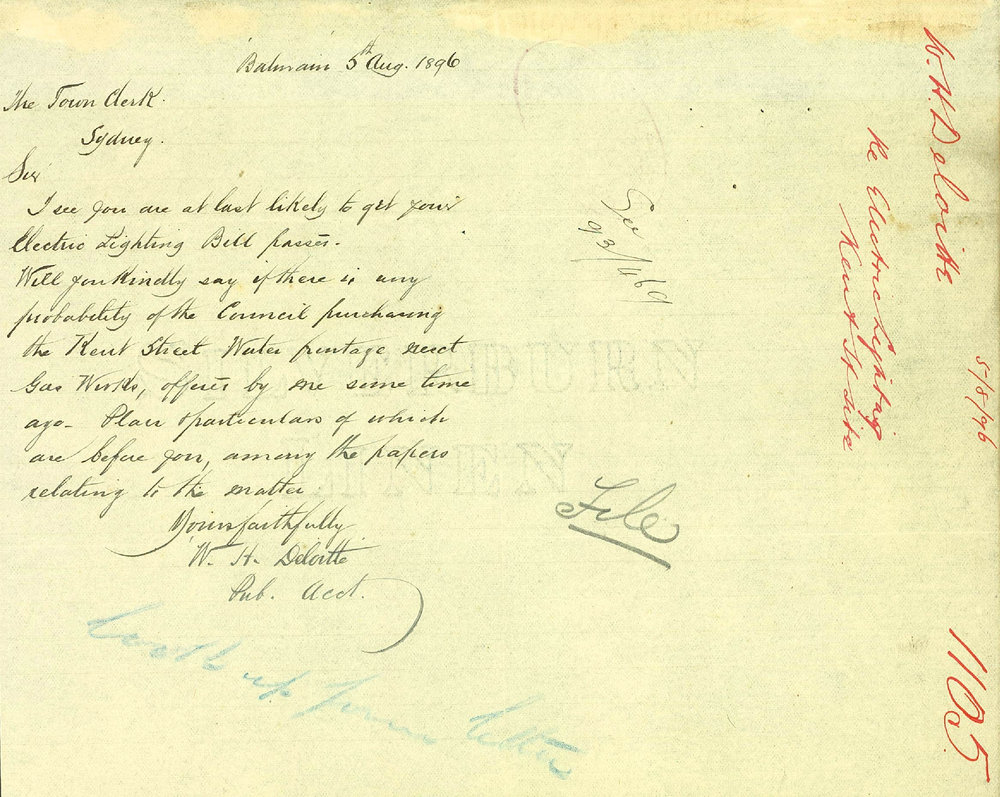 Balmain 5th Aug. 1896
The Town Clerk.
Sydney.
Sir
I see you are at last likely to get your
Electric Lighting Bill passed.
Will you kindly say if there is any
probability of the Council purchasing
the Kent Street Water frontage next
Gas Works, offered by me some time
ago. Plan & particulars of which
are before you, among the papers
relating to the matter
Yours faithfully
W. H. Deloitte
Pub. Acct.
up former letter
93/469
File
W. H. Deloitte
Re Electric Lighting
Kent St site
5/8/96
1105
LINEN